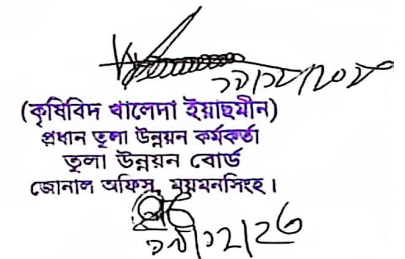 (কৃষিবিদ খালেদা ইয়াছমীন)
প্রধান তুলা উন্নয়ন কর্মকর্তা
তুলা উন্নয়ন বোর্ড
জোনাল অফিস, ময়মনসিংহ।